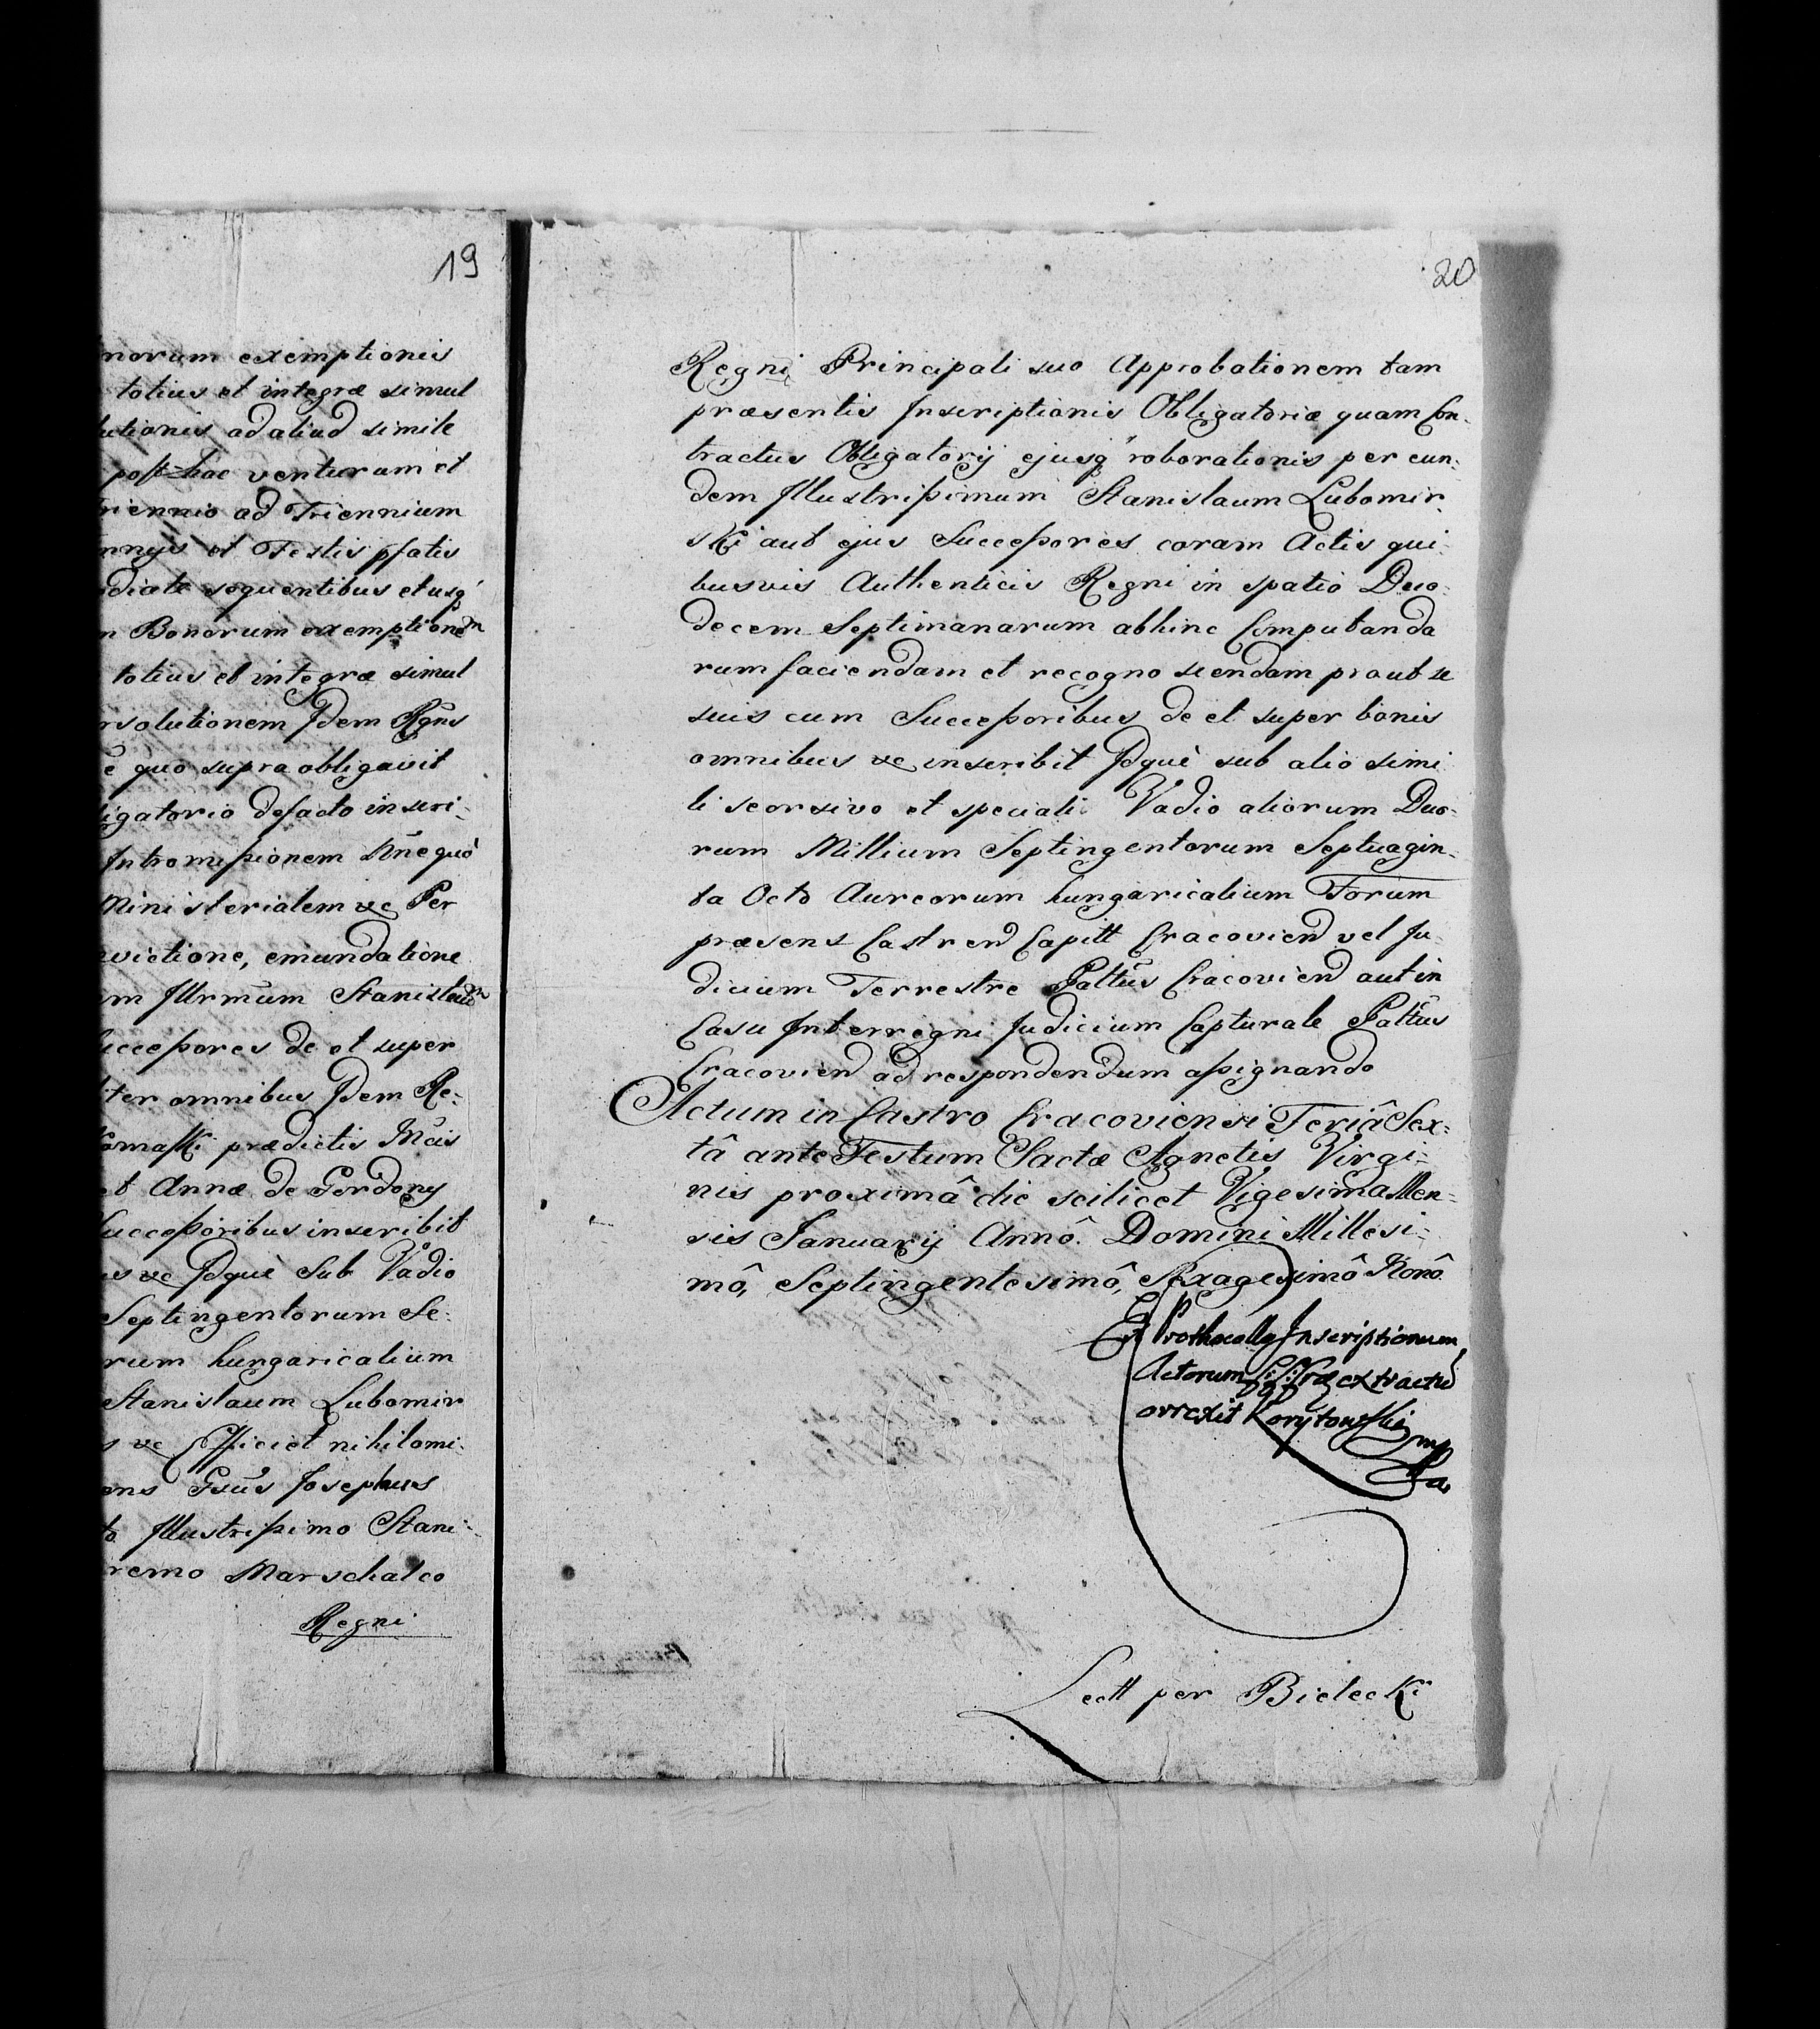 19
norum exemptionis
totius et integræ simul
lutionis ad aliud simile
post=hac venturam et
riennio ad Triennium
nnijs et Festis pfatis
diate sequentibus et usq
n Bonorum exemptionem
totius et integræ simul
rsolutionem Jdem Rgnus
quo supra obligavit
igatorio defacto inseri-
Intromissionem
Ministerialem ve Per
evictione, emundatione
m Jllrmum Stanislaum
uccessores de et super
ter omnibus Jdem Re-
prædictis
et Annæ de Gordony
uccessoribus inseribit
us ve Jdquè Sub Vadio
Septingentorum Se-
rum hungaricalium
Stanislaum Lubomir
s ve Efficiet nihilomi-
ens Gsus Josephus
to Jllustrissimo Stani-
remo Marschalco
Regni
20
Regni Principali suo Approbationem tam
præsentis Jnscriptionis Obligatoriæ quam Con-
tractus Obligatorij ejusq roborationis per eun-
dem Jllustrissimum Stanislaum Lubomir-
ski aut ejus Successores coram Actis qui-
busvis Authenticis Regni in spatio Duo-
decem Septimanarum abhinc Computanda
rum faciendam et recogno scendam prout se
suis cum Successoribus de et super bonis
omnibus ve inseribit Jdquè sub alio simi
li seorsivo et speciali Vadio aliorum Duo-
rum Millium Septingentorum Septuagin-
ta Octo Aureorum hungaricalium Forum
præsens Castren Capitt Cracovien vel Ju-
dicium Terrestre Pattus Cracovien aut in
Casu Interregni Judicium Capturale Pattus
Cracovien ad respondendum assignando
Actum in Castro Cracoviensi Feriâ Sex-
tâ ante Festum Sactæ Agnetis Virgi-
nis proximâ die scilicet Vigesima Men-
sis Januarij Annô Domini Millesi-
mô, Septingentesimô, Sexagesimô Nonô
Ex Prothocollo Inscriptionum
Actorum extractu
orrexit Korytowski mp
Lectt per Bielecki